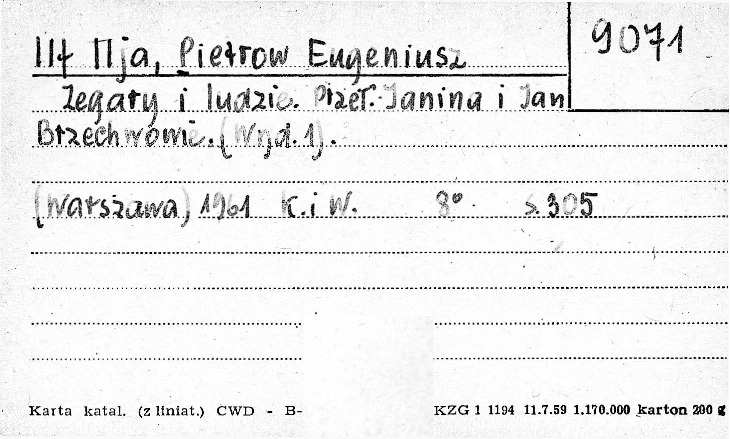 Ilf Ilja, Pietrow Eugeniusz
9071
Zegary i ludzie. Przeł. Janina i Jan
Brzechwowie. (Wyd. 1).
(Warszawa) 1961 K. i W. 8° s. 305
Karta katal. (z liniat.) CWD - B-
KZG 1 1194 11.7.59 1.170.000 karton 200 g